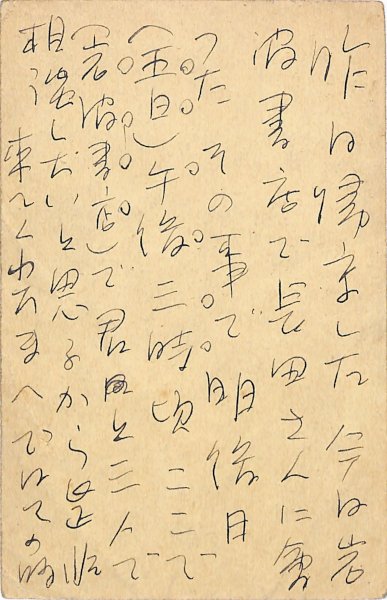 昨日帰京した 今日岩
波書店で長田さんに會
つた その事で明後日
(五日)午後三時頃ここで
(岩波書店)で君と三人で
相談したいと思ふから是非
来てくれたまへ